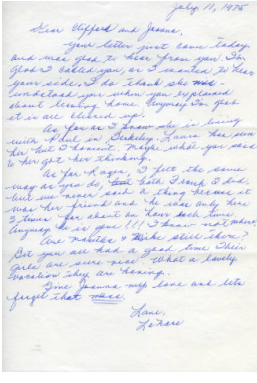 July 11, 1975
Dear Clifford and Joanna,
Your letter just came today
and was glad to hear from you. I'm
glad I called you, as I wanted to hear
your side. I do thank she
understood you when you explained
about leaving home. Anyway I'm glad
it is all cleared up.
As far as I know she is living
with in Berkeley. Laura has seen
her but I haven't. Maybe what you said
to her got her thinking.
As for Roger, I felt the same
way as you do, both Frank & I did,
but we never said a thing because it
was her friend and he was only here
2 times for about an hour each time.
Anyway he is gone!!! I know not where.
Are & Mike still there?
But you all had a good time. Their
girls are sure nice. What a lovely
vacation they are having.
Give Joanna my love and lets
forget that
Love,